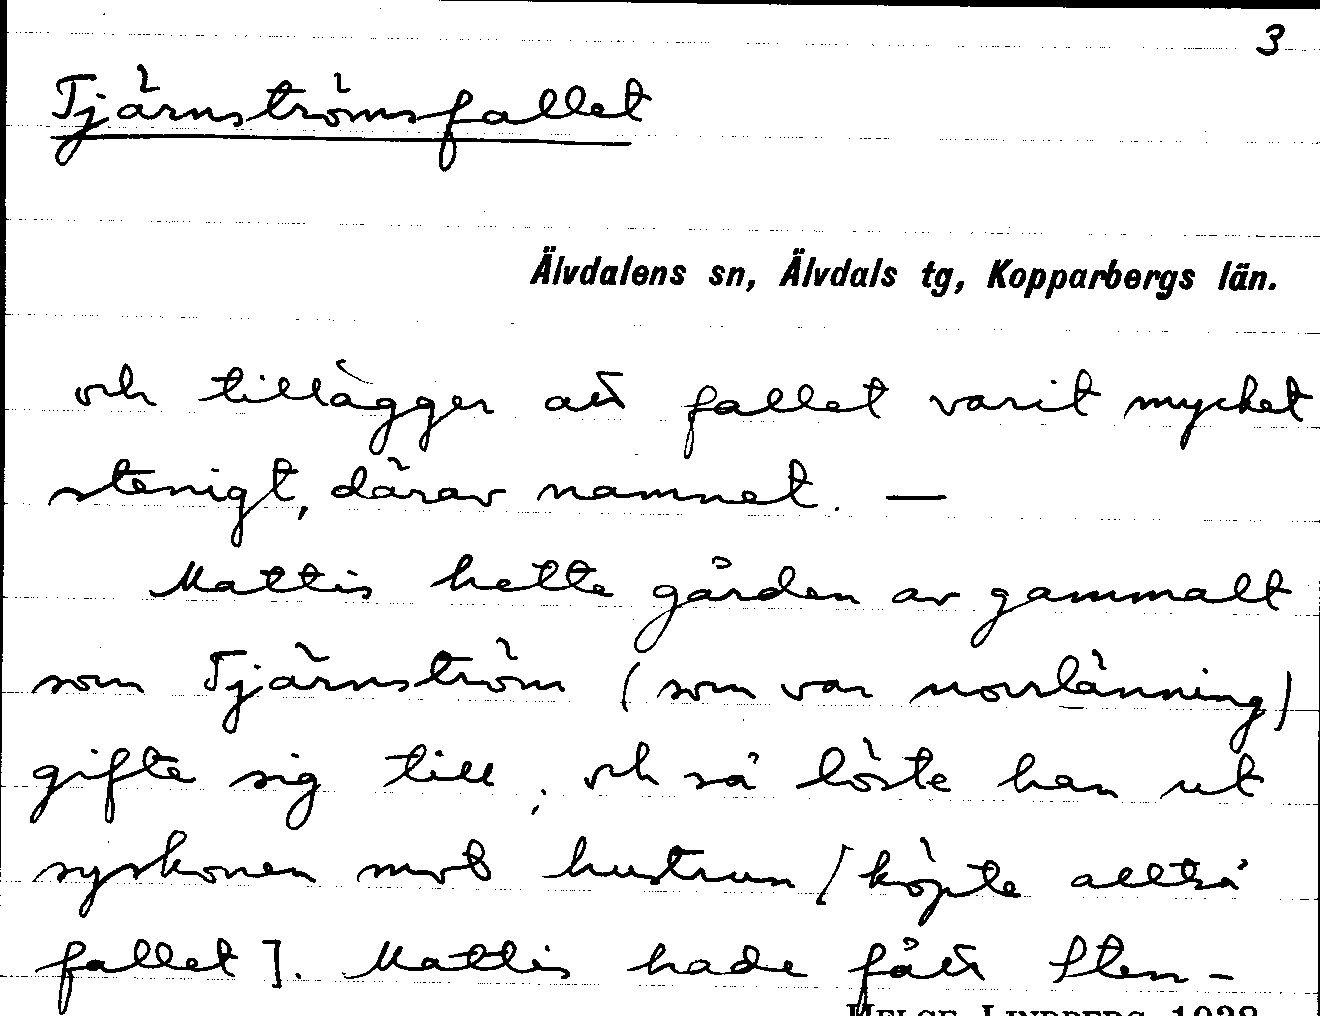 3
Tjärnströmsfallet
Älvdalens sn, Älvdals tg, Kopparbergs län.
och tillägger att fallet varit mycket
stenigt, därav namnet. —
Mattis hette gården av gammalt
som Tjärnström (som var norrlänning)
gifte sig till, och så löste han ut
syskonen mot hustrun [köpte alltså
fallet]. Mattis hade fått Sten-
HELGE LINDBERG 1938